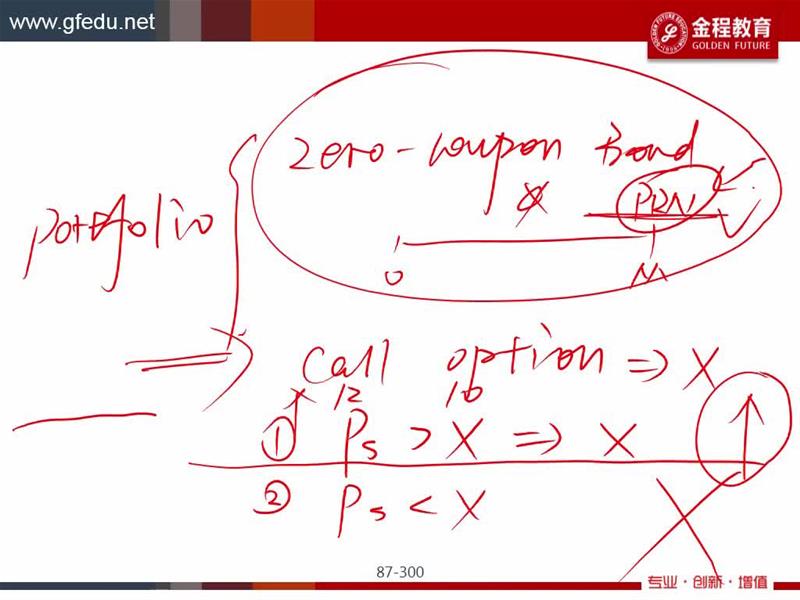 www.gfedu.net
金程教育
GOLDEN FUTURE
zero-coupon Bond
PRN
portfolio
0 M
Call option ⇒ X
12 10
① Ps > X ⇒ X
② Ps < X
87-300
专业·创新·增值